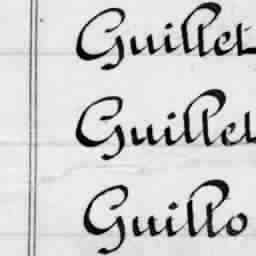 Guillet
Guillet
Guillo